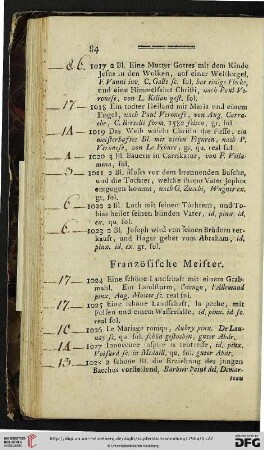 84
1017 2 Bl. Eine Mutter Gottes mit dem Kinde
Jesus in den Wolken, auf einer Weltkugel,
F. Vanni inv. C. Galle sc. hat einige Flecke,
und eine Himmelfahrt Christi, nach Paul Ve-
ronese, von L. Kilian gest. fol.
17 — 1018 Ein todter Heiland mit Maria und einem
Engel, nach Paul Veronese, von Aug. Carra-
che, C. Bertelli form. 1582 selten, gr. fol.
1019 Das Weib wäscht Christo die Füsse, ein
meisterhaftes Bl. mit vielen Figuren, nach P.
Veronese, von Le Febure, gr. qu. real fol.
1020 3 Bl. Bauern in Carrikatur, von F. Villa-
mena, fol.
1021 2 Bl. Moses vor dem brennenden Busche,
und die Tochter, welche ihrem Vater Jephta
entgegen kommt, nach G. Zucchi, Wagner ex.
gr. fol.
1022 2 Bl. Loth mit seinen Töchtern, und To-
bias heilet seinen blinden Vater, id. pinx. id.
ex. qu. fol.
6 — 1022 2 Bl. Joseph wird von seinen Brüdern ver-
kauft, und Hagar gehet vom Abraham, id.
pinx. id. ex. gr. fol.
Französische Meister.
17 — 1024 Eine schöne Landschaft mit einem Grab-
mahl. Ein Landsturm, l'orage, Vallemand
pinx. Aug. sc. real fol.
17 — 1025 Eine schöne Landschaft, la peche, mit
Felsen und einem Wasserfalle, id. pinx. id sc.
real fol.
10 — 1026 Le Mariage rompu, Aubry pinx. De Lau-
nay sc. qu. fol. schön gestochen, guter Abdr.
14 — 1027 sc. in Medaill, qu. fol. guter Abdr.
13 — 1028 2 schöne Bl. die Erziehung des jungen
Bacchus vorstellend, Barbier Peint del, Demar-
teau